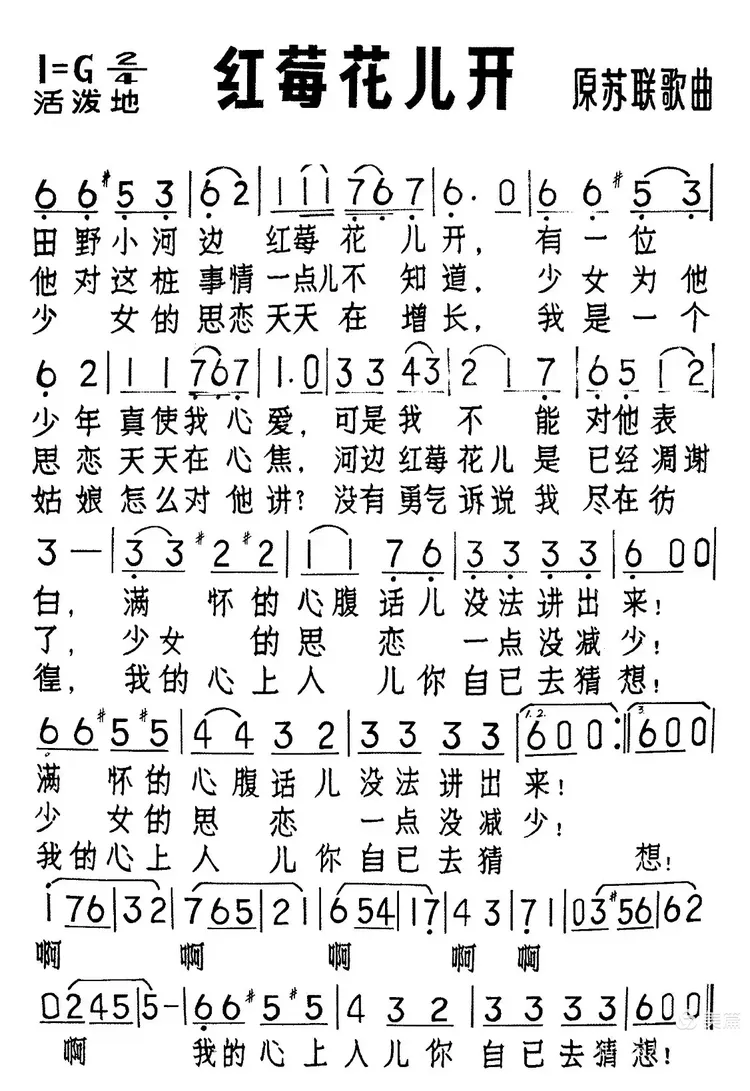 1=G 2/4 红莓花儿开 原苏联歌曲
活泼地
6 6 #5 3 | 6 2 | 1 1 1 7 6 7 | 6· 0 | 6 6 #5 3 |
田野小河边 红莓花儿开，有一位
他对这桩事情一点儿不知道，少女为他
少女的思恋天天在增长，我是一个
6 2 | 1 1 7 6 7 | 1· 0 | 3 3 4 3 | 2 1 7 | 6 5 1 2 |
少年真使我心爱，可是我不能对他表
思恋天天在心焦，河边红莓花儿是已经凋谢
姑娘怎么对他讲？没有勇气诉说我尽在彷
3 — | 3 3 #2 #2 | 1 1 7 6 | 3 3 3 3 | 6 0 0 |
白，满怀的心腹话儿没法讲出来！
了，少女的思恋一点没减少！
徨，我的心上人儿你自己去猜想！
6 6 #5 #5 | 4 4 3 2 | 3 3 3 3 | 1.2. 6 0 0 :‖ 3 6 0 0 |
满怀的心腹话儿没法讲出来！
少女的思恋一点没减少！
我的心上人儿你自己去猜想！
1 7 6 | 3 2 | 7 6 5 | 2 1 | 6 5 4 | 1 7 | 4 3 | #7 1 | 0 3 #5 6 | 6 2
啊 啊 啊 啊 啊
0 2 4 5 | 5 - | 6 6 #5 #5 | 4 3 2 | 3 3 3 3 | 6 0 0 ‖
啊 我的心上人儿你自己去猜想！